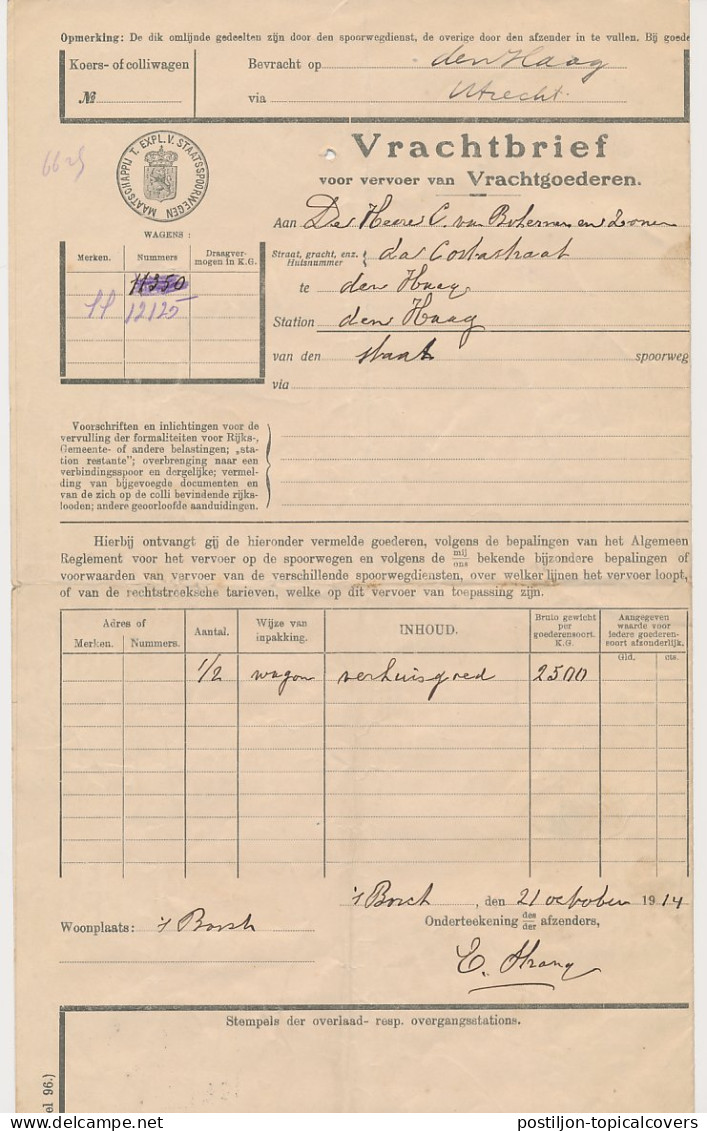 Opmerking: De dik omlijnde gedeelten zijn door den spoorwegdienst, de overige door den afzender in te vullen. Bij goede
Koers- of colliwagen
№
Bevracht op den Haag
via Utrecht
MAATSCHAPPIJ T. EXPL. V. STAATSSPOORWEGEN
Vrachtbrief
voor vervoer van Vrachtgoederen.
Aan De Heere C. van en Zonen
WAGENS:
Merken. Nummers Draagver-
mogen in K.G.
11350
12125
Straat, gracht, enz.
Huisnummer
da Costastraat
te den Haag
Station den Haag
van den staat spoorweg
via
Voorschriften en inlichtingen voor de
vervulling der formaliteiten voor Rijks-,
Gemeente- of andere belastingen; „sta-
tion restante"; overbrenging naar een
verbindingsspoor en dergelijke; vermel-
ding van bijgevoegde documenten en
van de zich op de colli bevindende rijks-
looden; andere geoorloofde aanduidingen.
Hierbij ontvangt gij de hieronder vermelde goederen, volgens de bepalingen van het Algemeen
Reglement voor het vervoer op de spoorwegen en volgens de mij/ons bekende bijzondere bepalingen of
voorwaarden van vervoer van de verschillende spoorwegdiensten, over welker lijnen het vervoer loopt,
of van de rechtstreeksche tarieven, welke op dit vervoer van toepassing zijn.
Adres of
Merken. Nummers.
Aantal.
Wijze van
inpakking.
INHOUD.
Bruto gewicht
per
goederensoort.
K.G.
Aangegeven
waarde voor
iedere goederen-
soort afzonderlijk.
Gld. cts.
1/2 wagon verhuisgoed 2500
's Bosch, den 21 october 1914
Woonplaats: 's Bosch
Onderteekening des/der afzenders,
E.
Stempels der overlaad- resp. overgangsstations.
el 96.)
postiljon-topicalcovers